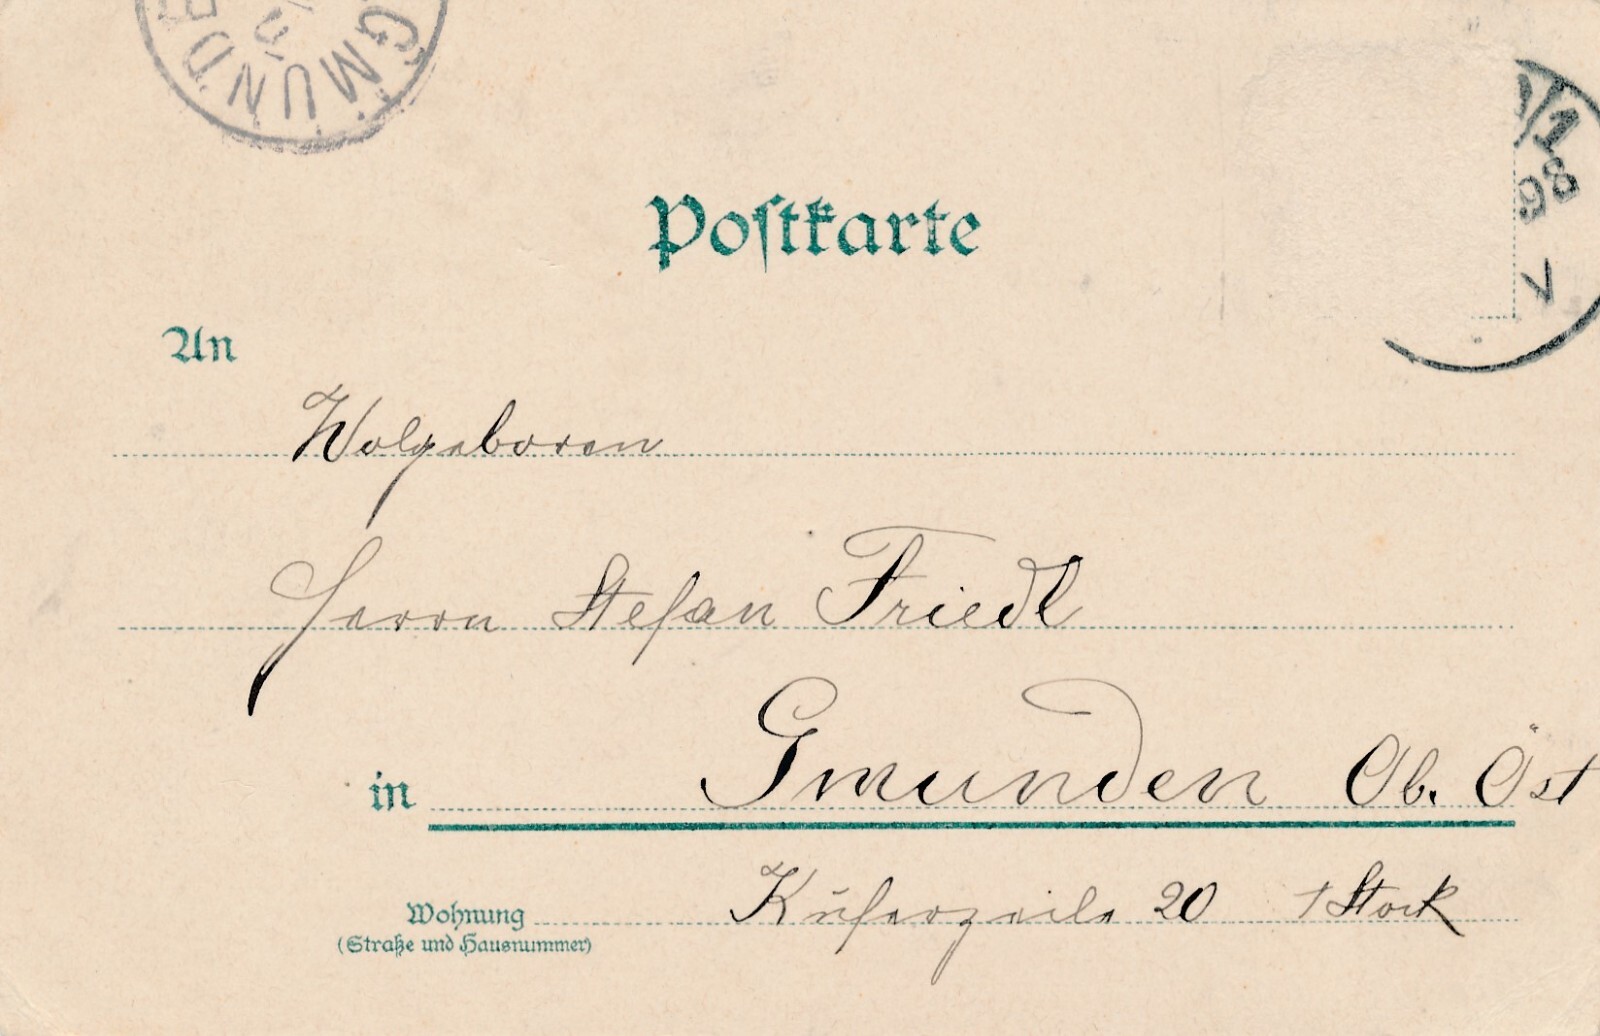 GMUNDE
1/1
98
7
Postkarte
An
Wolgeboren
Herrn Stefan Friedl
in Gmunden Ob. Öst
Wohnung Kuferzeile 20 1 Stock
(Straße und Hausnummer)